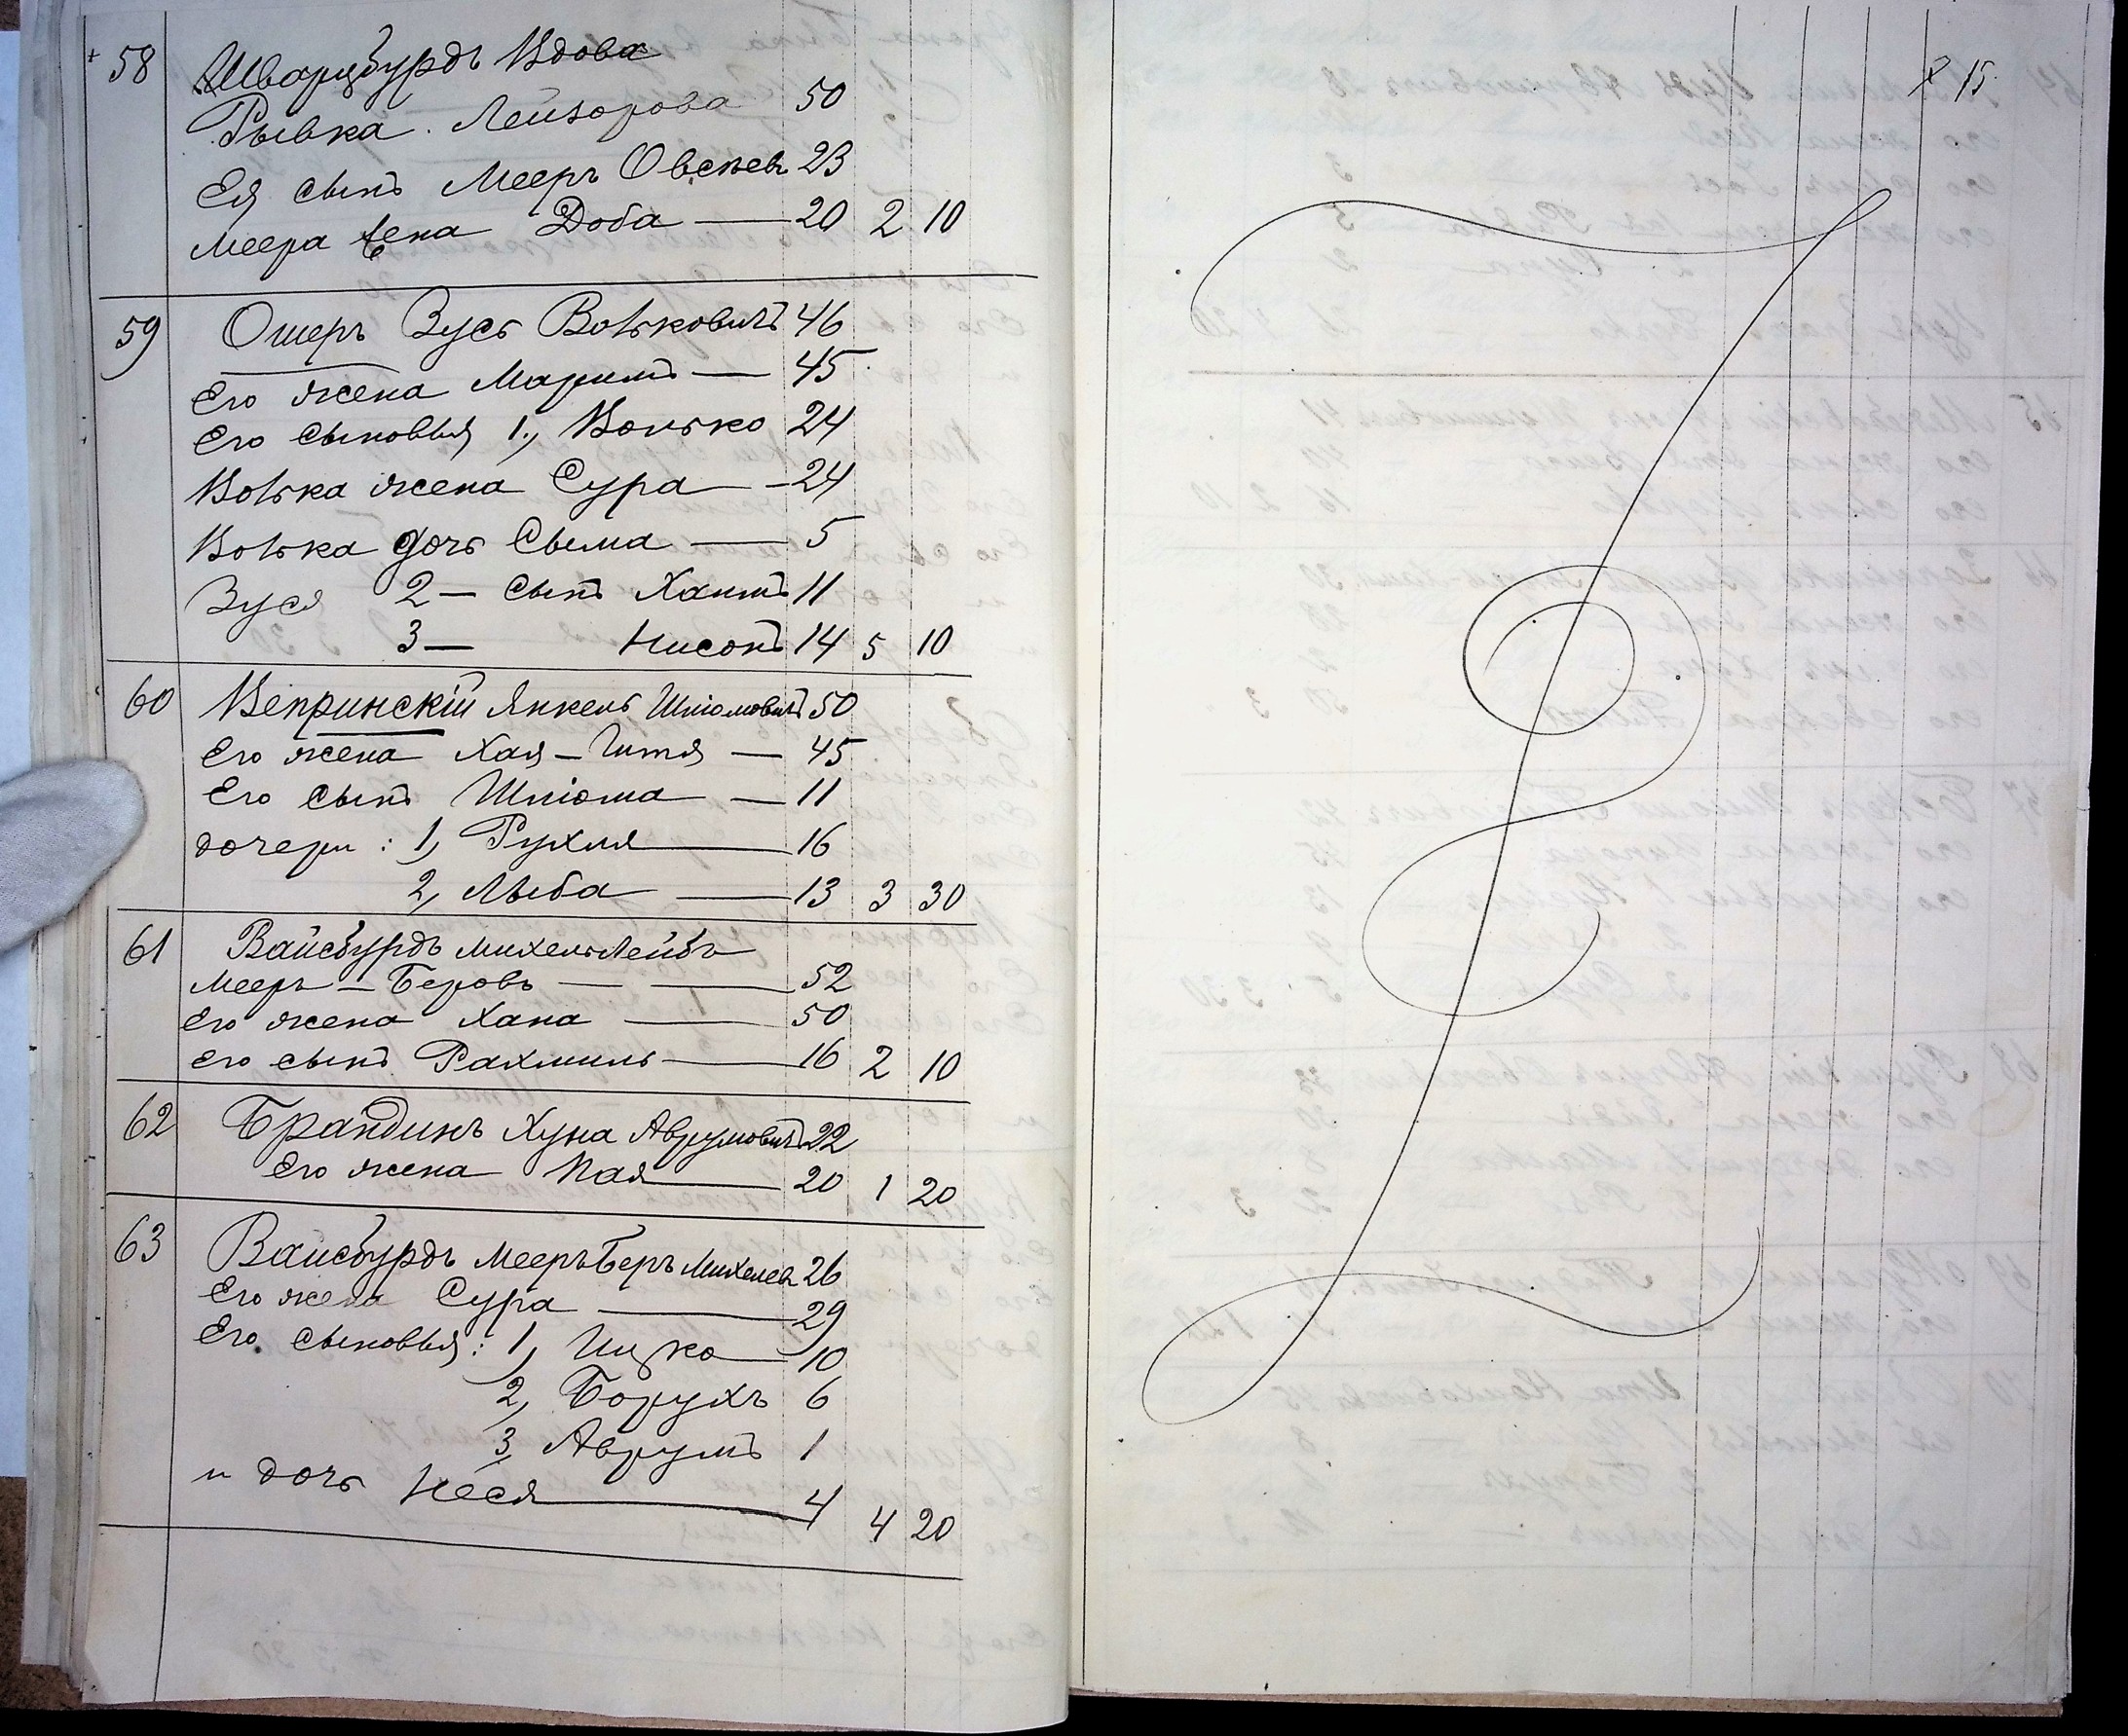 58 Шварцбурдъ Вдова
Рывка Лейзорова 50
Ея сынъ Мееръ Овсѣевъ 23
Меера жена Доба — 20 2 10
59 Ошеръ Зусь Вольковичъ 46
Его жена Маримъ — 45
Его сыновья 1., Волько 24
Волька жена Сура — 24
Волька дочь Сыма — 5
Зуся 2 — сынъ Хаимъ 11
3 — Нисонъ 14 5 10
60 Вепринскій Янкель Шліомовичъ 50
Его жена Хая — Гитля — 45
Его сынъ Шліома — 11
дочери : 1, Рухля — 16
2, Лыба — 13 3 30
61 Вайсбурдъ Михель Лейбъ
Мееръ — Беровъ — 52
Его жена Хана — 50
Его сынъ Рахмиль — 16 2 10
62 Брандинъ Хуна Аврумовичъ 22
Его жена Пая — 20 1 20
63 Вайсбурдъ Мееръ Беръ Михелевъ 26
Его жена Сура — 29
Его сыновья : 1, Ицко — 10
2, Борухъ 6
3, Аврумъ 1
и дочь Неся — 4 4 20
15